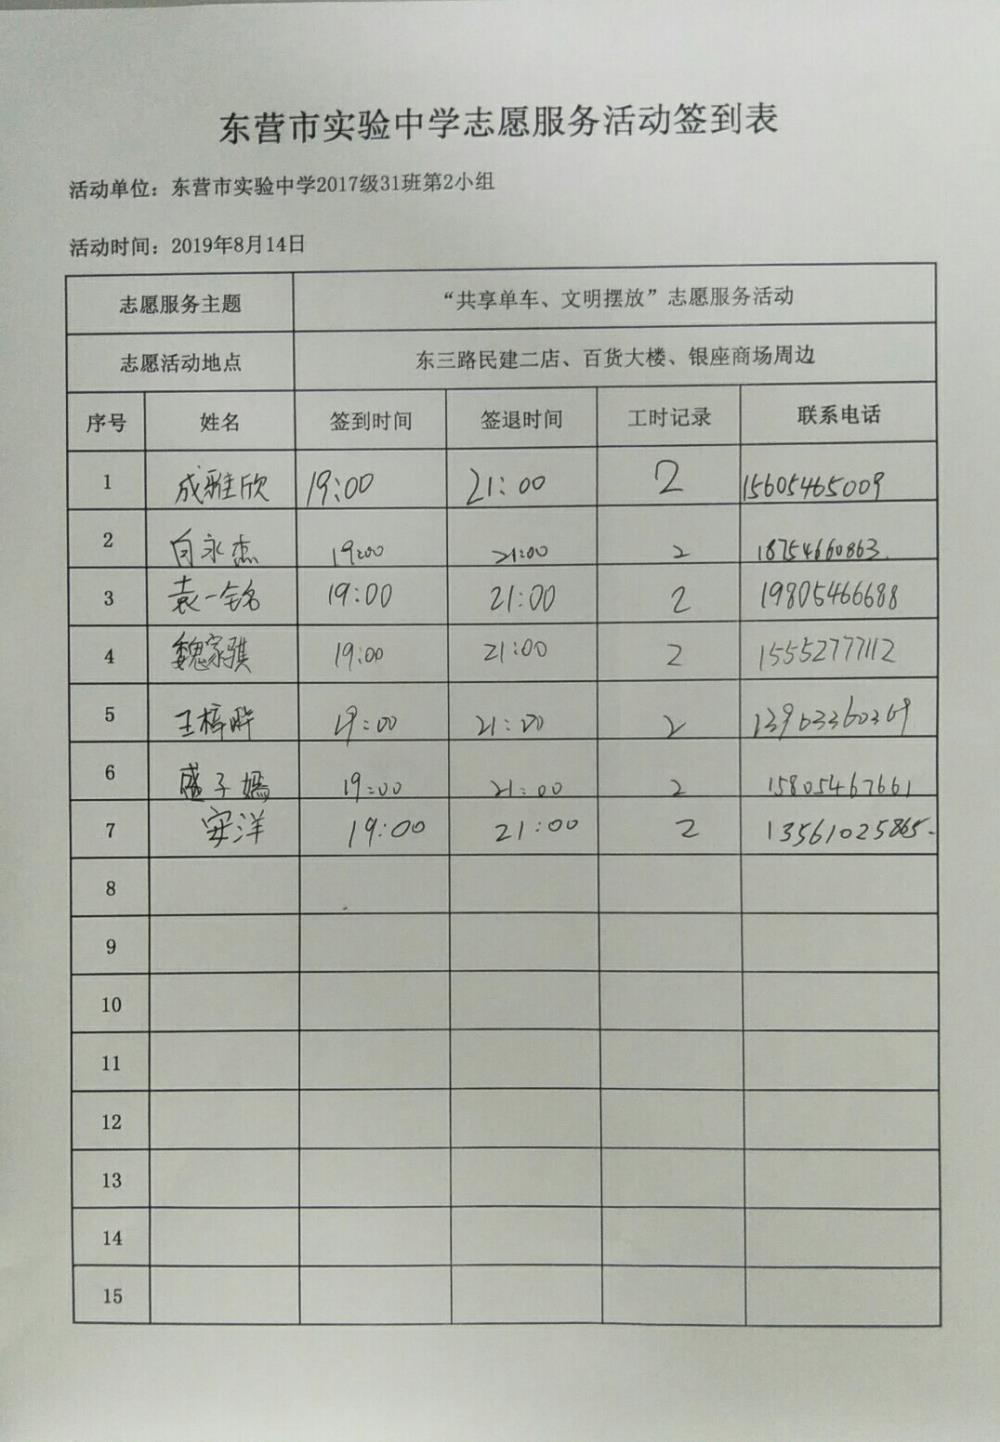 东营市实验中学志愿服务活动签到表
活动单位：东营市实验中学2017级31班第2小组
活动时间：2019年8月14日
志愿服务主题 “共享单车、文明摆放”志愿服务活动
志愿活动地点 东三路民建二店、百货大楼、银座商场周边
序号 姓名 签到时间 签退时间 工时记录 联系电话
1 成雅欣 19:00 21:00 2 15605465009
2 向永杰 19:00 21:00 2 18754660863.
3 袁一铭 19:00 21:00 2 19805466688
4 魏家骐 19:00 21:00 2 15552777112
5 王梓晔 19:00 21:00 2 13963360369
6 盛子嫣 19:00 21:00 2 15805467661
7 安洋 19:00 21:00 2 13561025865.
8
9
10
11
12
13
14
15